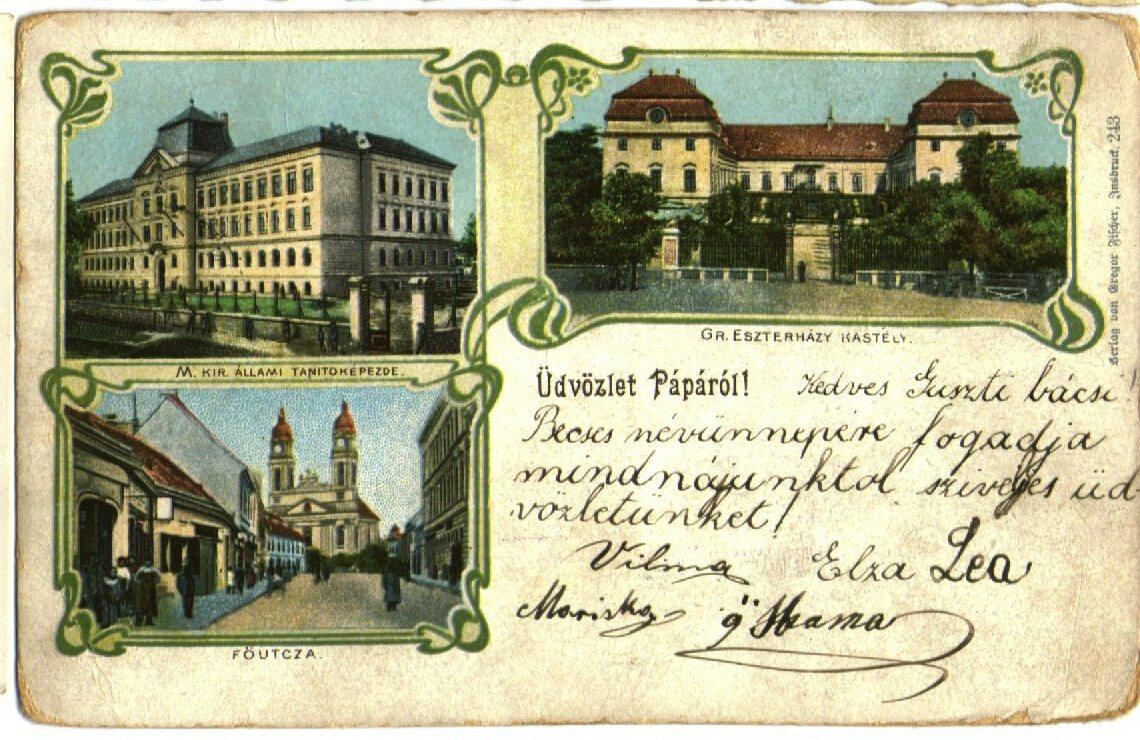 M. KIR. ÁLLAMI TANITOKÉPEZDE.
GR. ESZTERHÁZY KASTÉLY.
FŐUTCZA.
Verlag von Gregor Fischer, Innsbruck, 243
Üdvözlet Pápáról! Kedves Guszti bácsi!
Becses névünnepére fogadja
mindnájunktol szivejes üd
vözletünket!
Vilma Elza Lea
Mariska